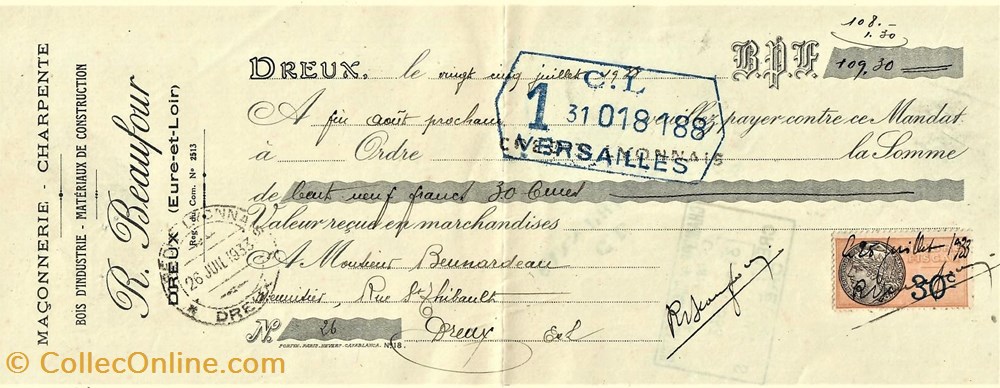 MAÇONNERIE - CHARPENTE
BOIS D'INDUSTRIE - MATÉRIAUX DE CONSTRUCTION
R. Beaufour
DREUX (Eure-et-Loir)
Reg. du Com. No 2513
108.-
1.30
DREUX, le vingt cinq juillet 19
B.P.F. 109,30
A fin août prochain veuillez payer contre ce Mandat
à Ordre CRÉDIT LYONNAIS la Somme
de Cent neuf francs 30 Cmes
Valeur reçue en marchandises
A Monsieur Beunardeau
Menuisier, Rue St Thibault
No 26 Dreux E&L
PORTES-PARIS-NEVERS-CASABLANCA. No 18.
C.L
1 31 018 188
VERSAILLES
CRÉDIT LYONNAIS
26 JUIL 1933
DREUX
le 25 juillet 1933
30
R. Beaufour
© CollecOnline.com